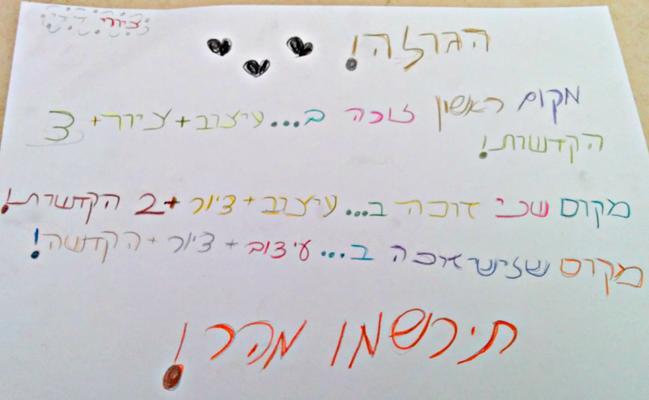 ציורי
הגרלה!
מקום ראשון זוכה ב... עיצוב + ציור + 3
הקדשות!
מקום שני זוכה ב... עיצוב + ציור + 2 הקדשות!
מקום שלישי זוכה ב... עיצוב + ציור + הקדשה!
תירשמו מהר!